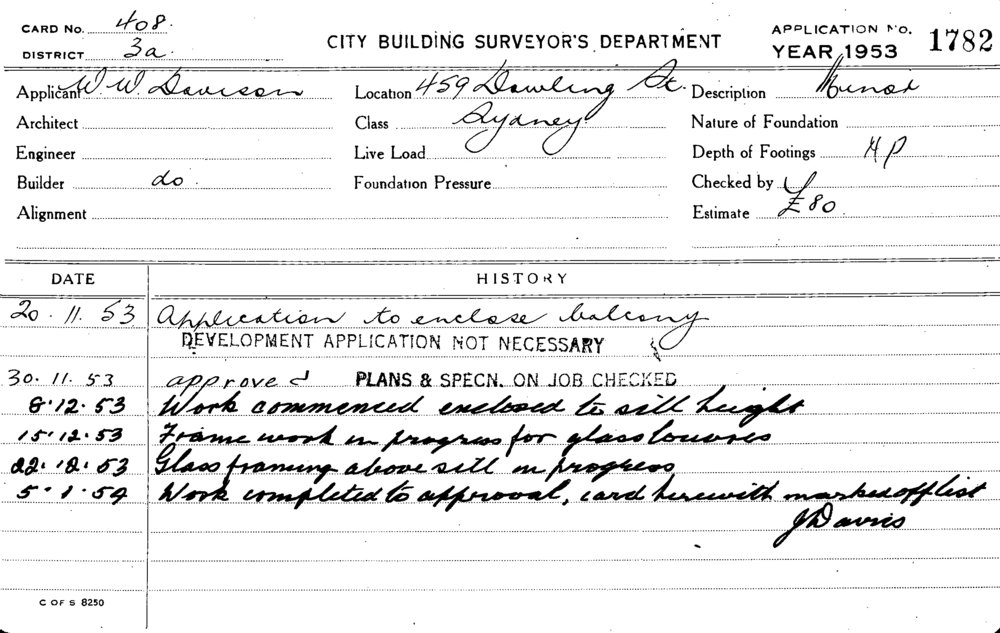 CARD No. 408.
DISTRICT 3a.
CITY BUILDING SURVEYOR'S DEPARTMENT
APPLICATION No.
YEAR 1953 1782
Applicant W. W. Davison Location 459 Dowling St. Description Minor
Architect Class Sydney Nature of Foundation
Engineer Live Load Depth of Footings
Builder do. Foundation Pressure Checked by
Alignment Estimate £80.
DATE HISTORY
20.11.53 Application to enclose balcony
DEVELOPMENT APPLICATION NOT NECESSARY
30.11.53 approved PLANS & SPECN. ON JOB CHECKED
8.12.53 Work commenced enclosed to sill height
15.12.53 Frame work in progress for glass louvres
22.12.53 Glass framing above sill in progress
5.1.54 Work completed to approval, card herewith marked off list
J Davis
C OF S 8250